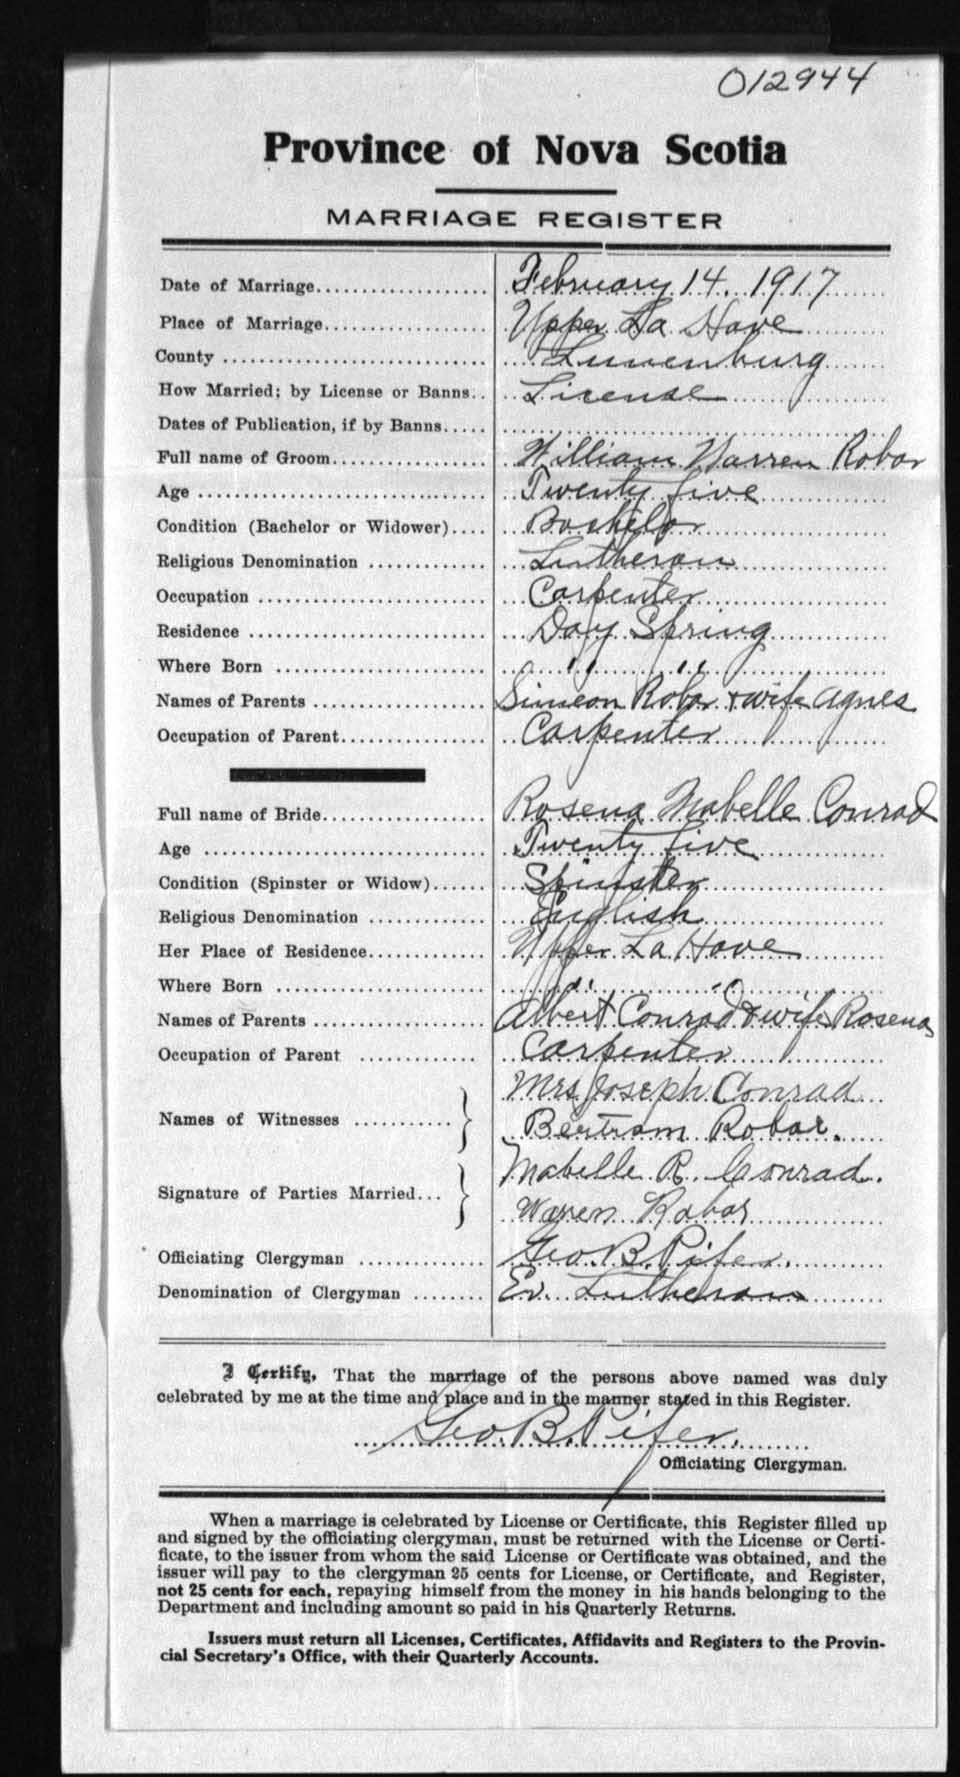 012944
Province of Nova Scotia
MARRIAGE REGISTER
Date of Marriage.................... February 14, 1917
Place of Marriage................... Upper La Have
County .............................. Lunenburg
How Married; by License or Banns.. License
Dates of Publication, if by Banns.....
Full name of Groom.................. William Warren Robar
Age ................................. Twenty five
Condition (Bachelor or Widower).... Bachelor
Religious Denomination ............. Lutheran
Occupation .......................... Carpenter
Residence ........................... Day Spring
Where Born ........................ " "
Names of Parents ................... Simeon Robar & wife Agnes
Occupation of Parent................. Carpenter
Full name of Bride................... Rosena Mabelle Conrad
Age ................................. Twenty five
Condition (Spinster or Widow)...... Spinster
Religious Denomination ............. English
Her Place of Residence............. Upper La Have
Where Born ........................ " "
Names of Parents ................... Albert Conrad & wife Rosena
Occupation of Parent ............. Carpenter
Mrs Joseph Conrad
Names of Witnesses ...........}
Bertram Robar.
Mabelle R. Conrad.
Signature of Parties Married...}
Warren Robar
Officiating Clergyman .............. Geo. B. Pifer.
Denomination of Clergyman ........ Ev. Lutheran
I Certify, That the marriage of the persons above named was duly
celebrated by me at the time and place and in the manner stated in this Register.
Geo. B. Pifer.
Officiating Clergyman.
When a marriage is celebrated by License or Certificate, this Register filled up
and signed by the officiating clergyman, must be returned with the License or Certi-
ficate, to the issuer from whom the said License or Certificate was obtained, and the
issuer will pay to the clergyman 25 cents for License, or Certificate, and Register,
not 25 cents for each, repaying himself from the money in his hands belonging to the
Department and including amount so paid in his Quarterly Returns.
Issuers must return all Licenses, Certificates, Affidavits and Registers to the Provin-
cial Secretary's Office, with their Quarterly Accounts.